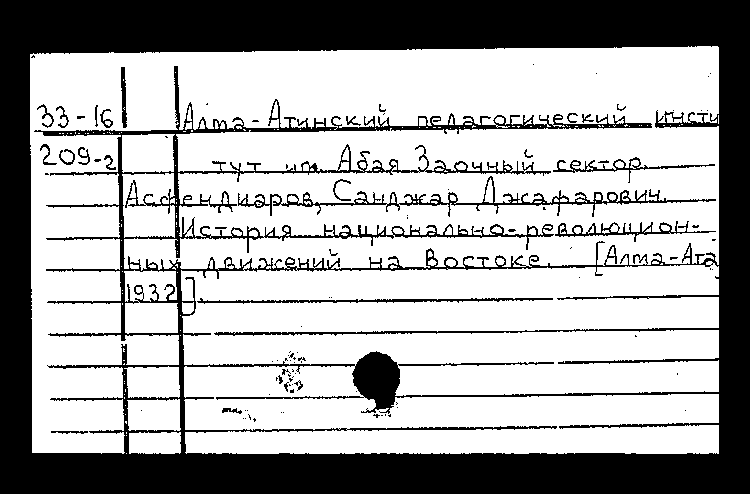 33-16 Алма-Атинский педагогический инсти
209-2 тут им. Абая Заочный сектор.
Асфендиаров, Санджар Джафарович.
История национально-революцион-
ных движений на Востоке. [Алма-Ата
1932].